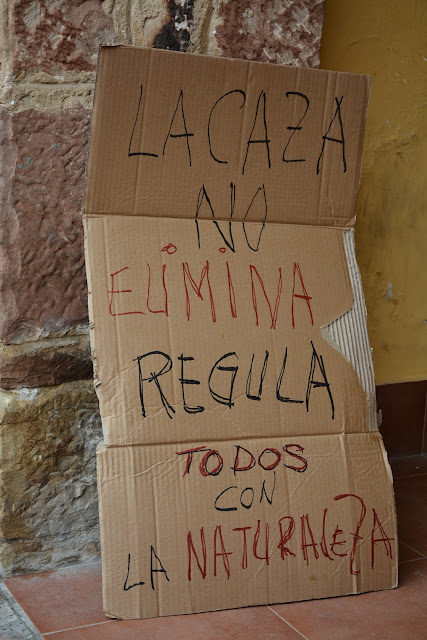 LA CAZA
NO
ELIMINA
REGULA
TODOS
CON
LA NATURALEZA